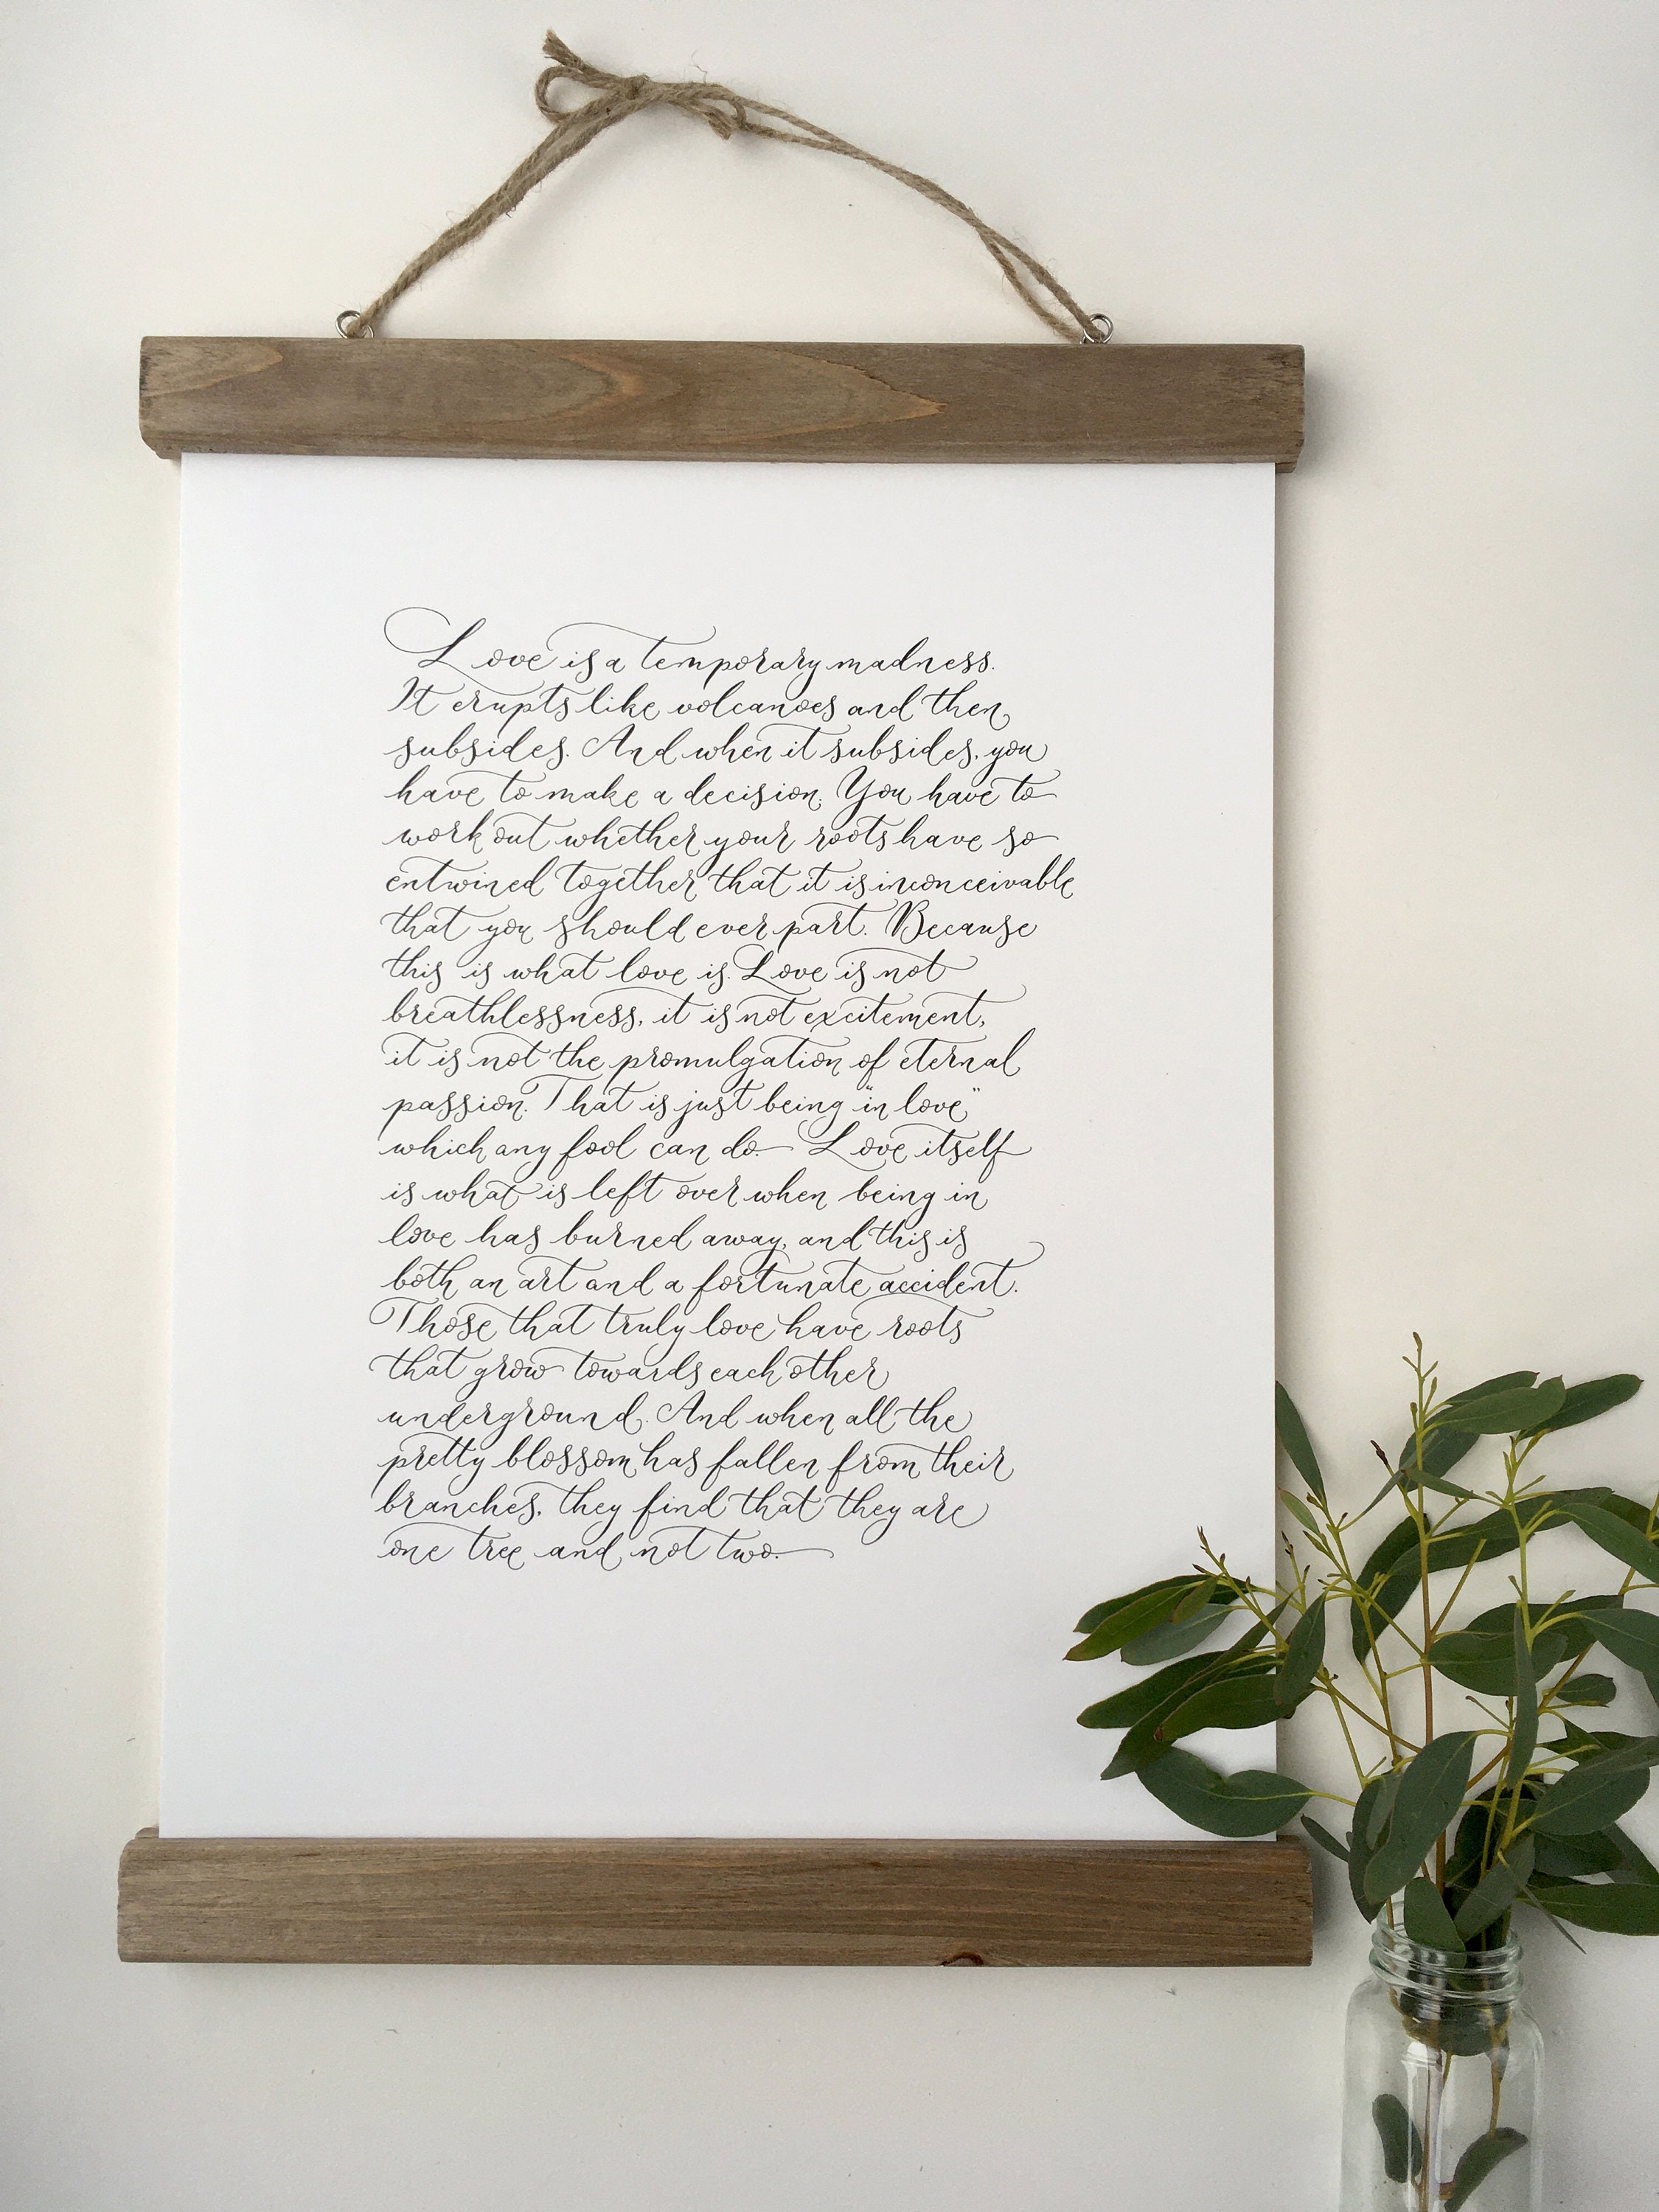 Love is a temporary madness.
It erupts like volcanoes and then
subsides. And when it subsides, you
have to make a decision. You have to
work out whether your roots have so
entwined together that it is inconceivable
that you should ever part. Because
this is what love is. Love is not
breathlessness, it is not excitement,
it is not the promulgation of eternal
passion. That is just being "in love"
which any fool can do. Love itself
is what is left over when being in
love has burned away, and this is
both an art and a fortunate accident.
Those that truly love have roots
that grow towards each other
underground. And when all the
pretty blossom has fallen from their
branches, they find that they are
one tree and not two.